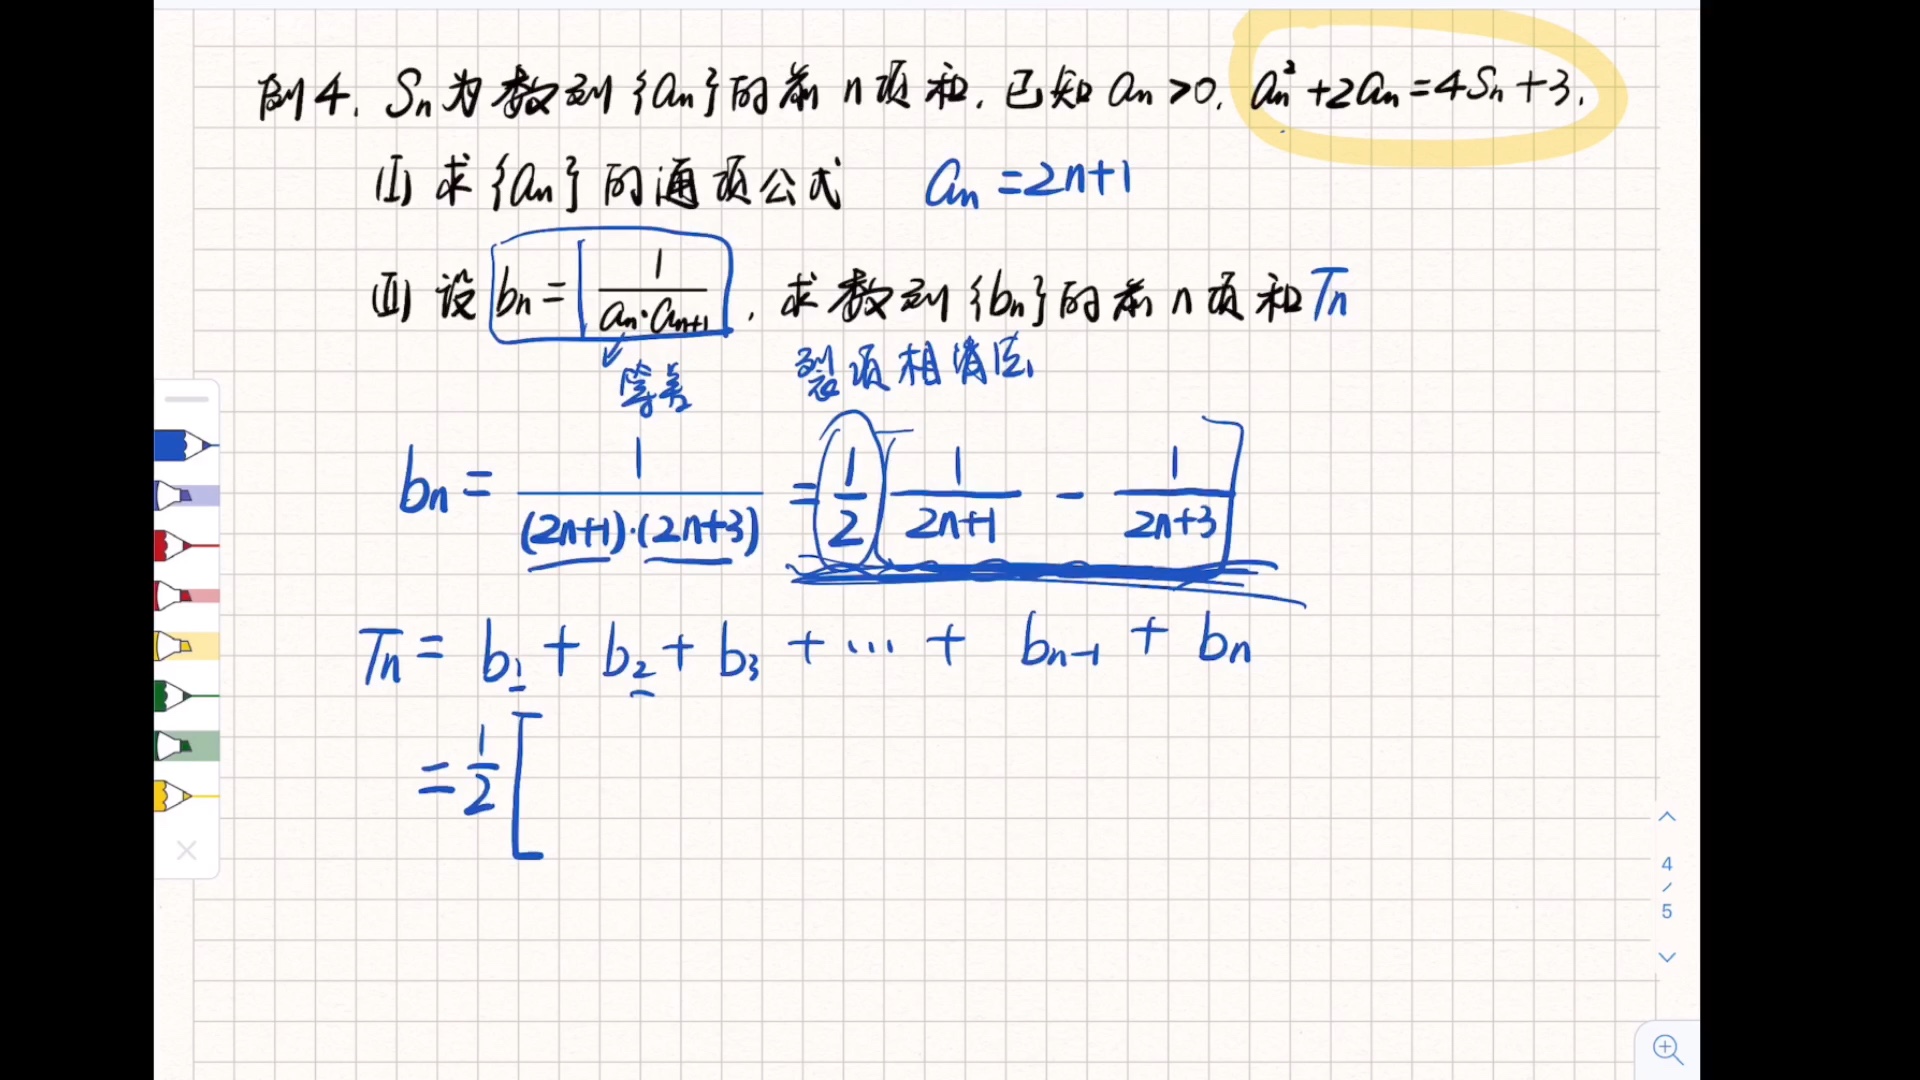 例4. Sn为数列{an}的前n项和. 已知an>0. an²+2an=4Sn+3.
(I) 求{an}的通项公式 an=2n+1
(II) 设bn=1/(an·an+1), 求数列{bn}的前n项和Tn
等差 裂项相消法
bn=1/((2n+1)·(2n+3))=1/2[1/(2n+1)-1/(2n+3)]
Tn=b1+b2+b3+…+bn-1+bn
=1/2[
4/5